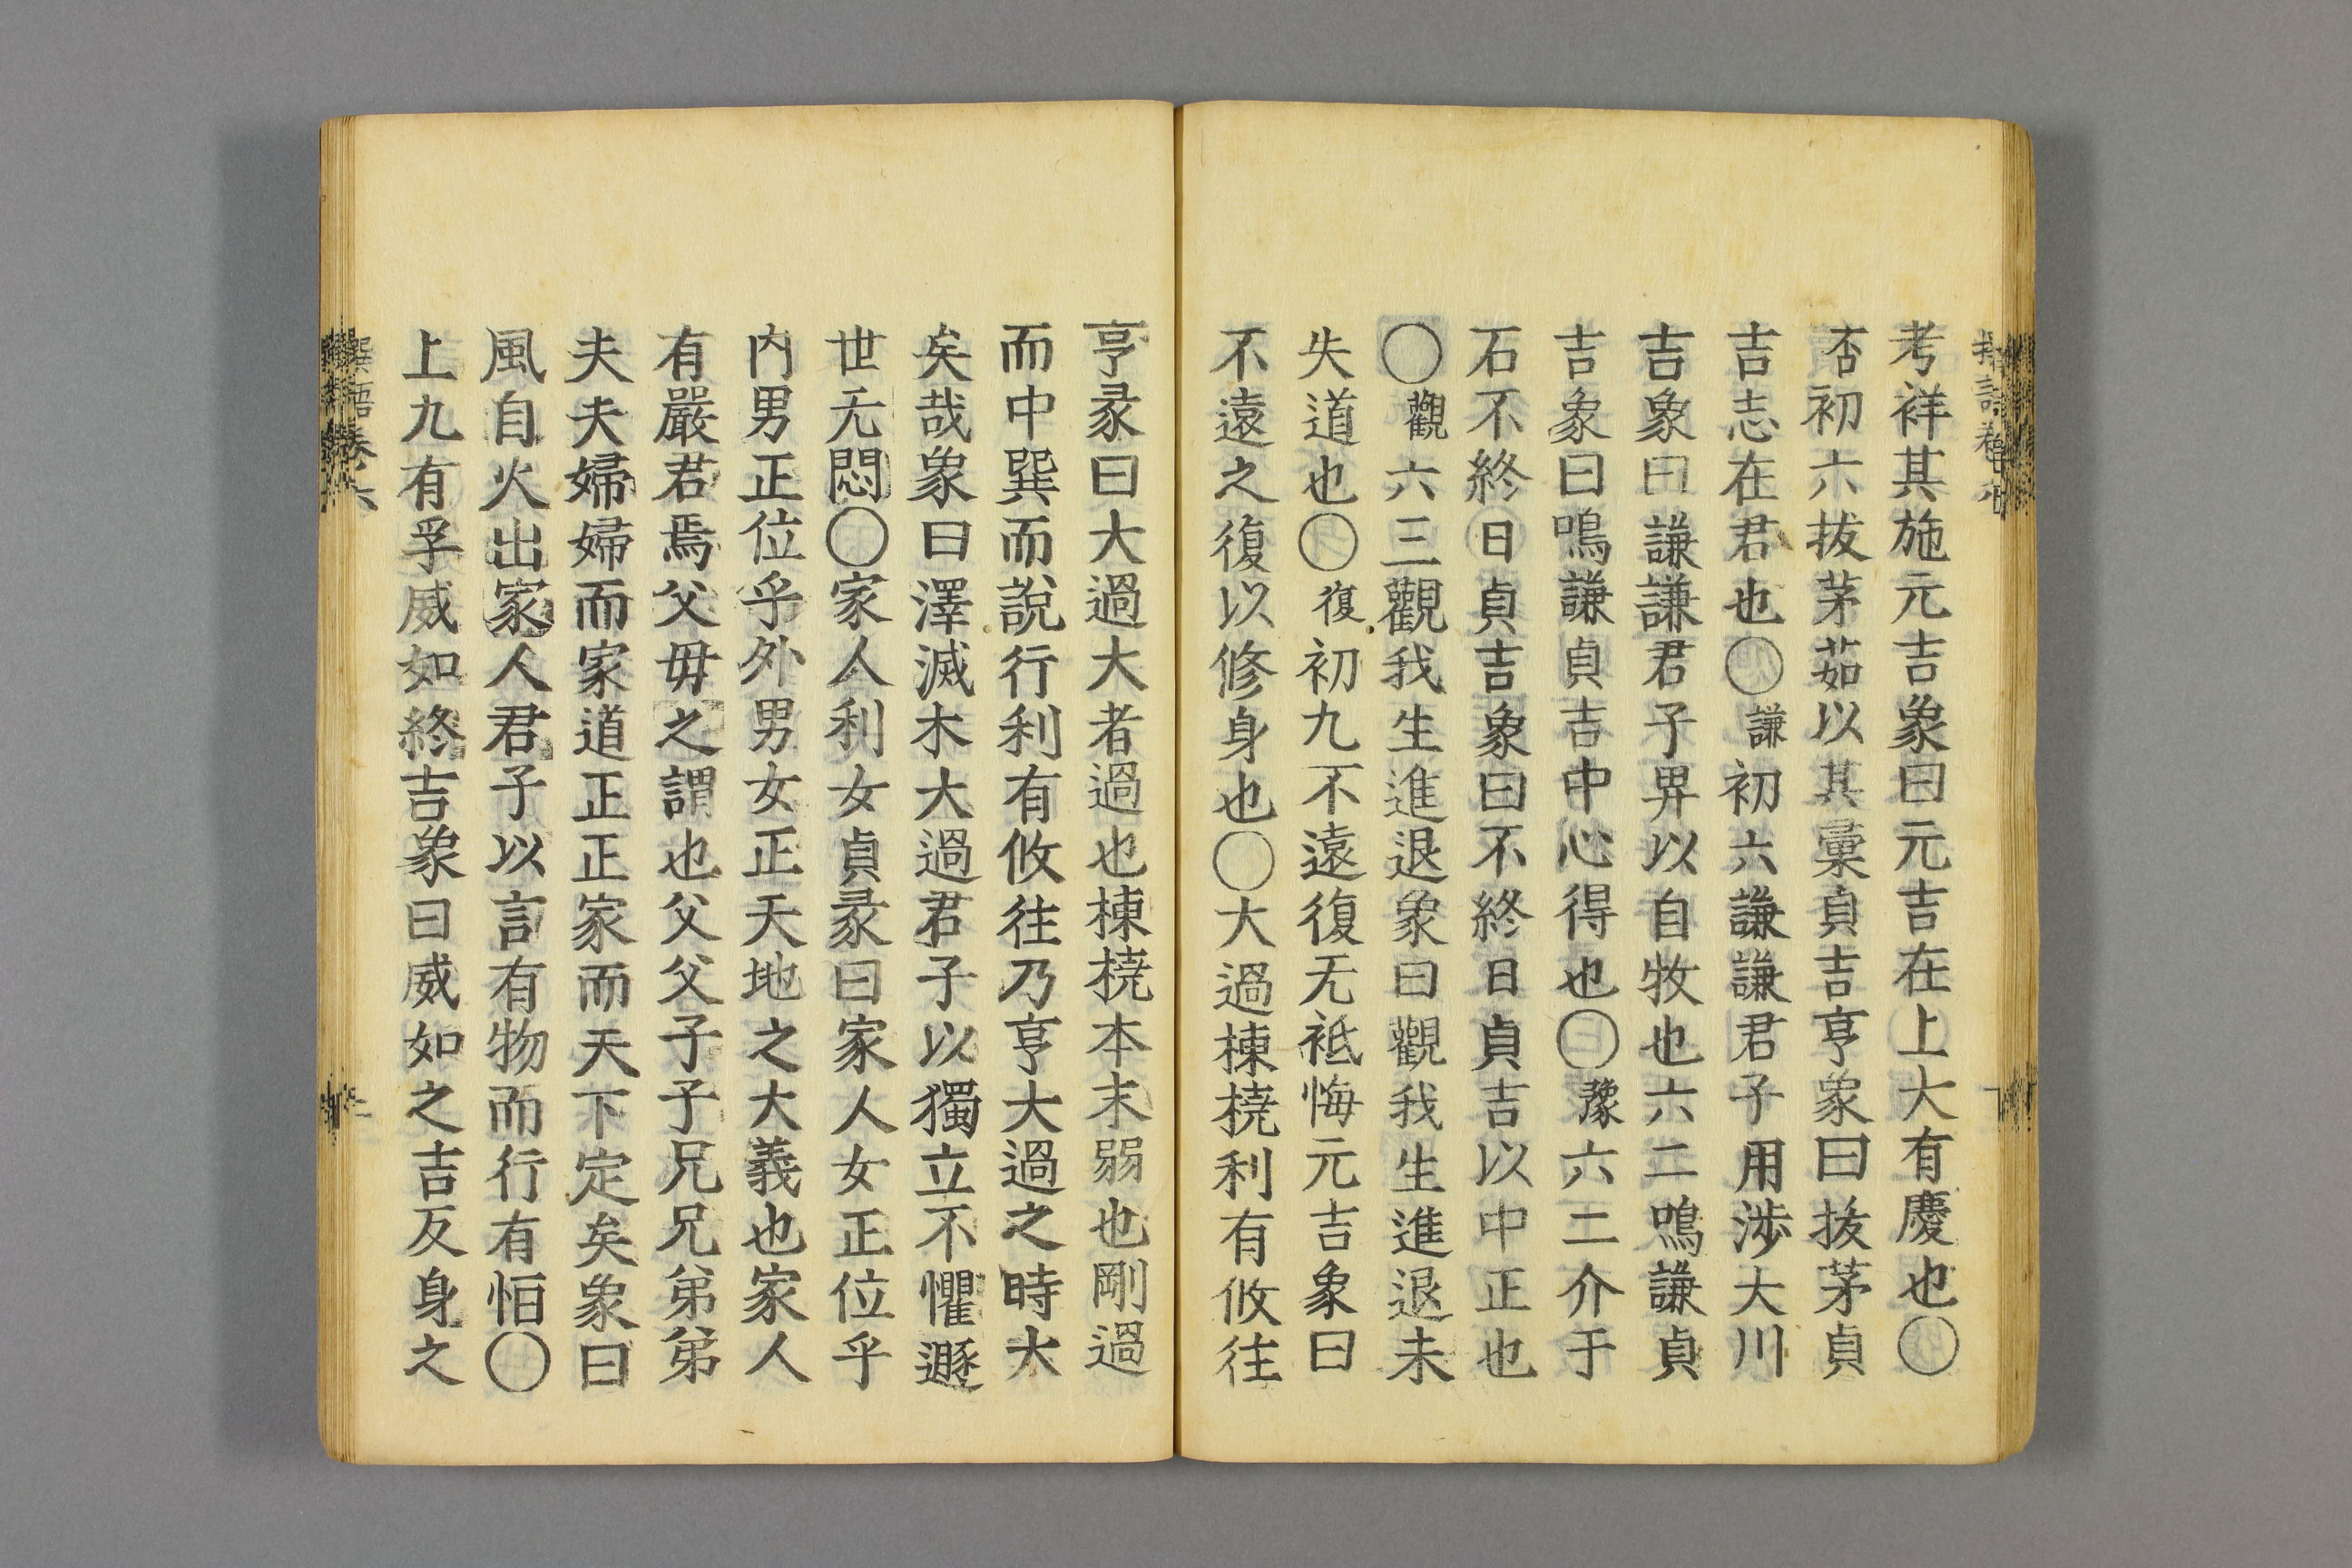 考祥其施元吉象曰元吉在上大有慶也〇
否初六拔茅茹以其彙貞吉亨象曰拔茅貞
吉志在君也〇謙初六謙謙君子用涉大川
吉象曰謙謙君子畀以自牧也六二鳴謙貞
吉象曰鳴謙貞吉中心得也〇豫六二介于
石不終日貞吉象曰不終日貞吉以中正也
〇觀六三觀我生進退象曰觀我生進退未
失道也〇復初九不遠復无祗悔元吉象曰
不遠之復以修身也〇大過棟橈利有攸往
亨彖曰大過大者過也棟橈本末弱也剛過
而中巽而說行利有攸往乃亨大過之時大
矣哉象曰澤滅木大過君子以獨立不懼遯
世无悶〇家人利女貞彖曰家人女正位乎
內男正位乎外男女正天地之大義也家人
有嚴君焉父母之謂也父父子子兄兄弟弟
夫夫婦婦而家道正正家而天下定矣象曰
風自火出家人君子以言有物而行有恒〇
上九有孚威如終吉象曰威如之吉反身之
卷六